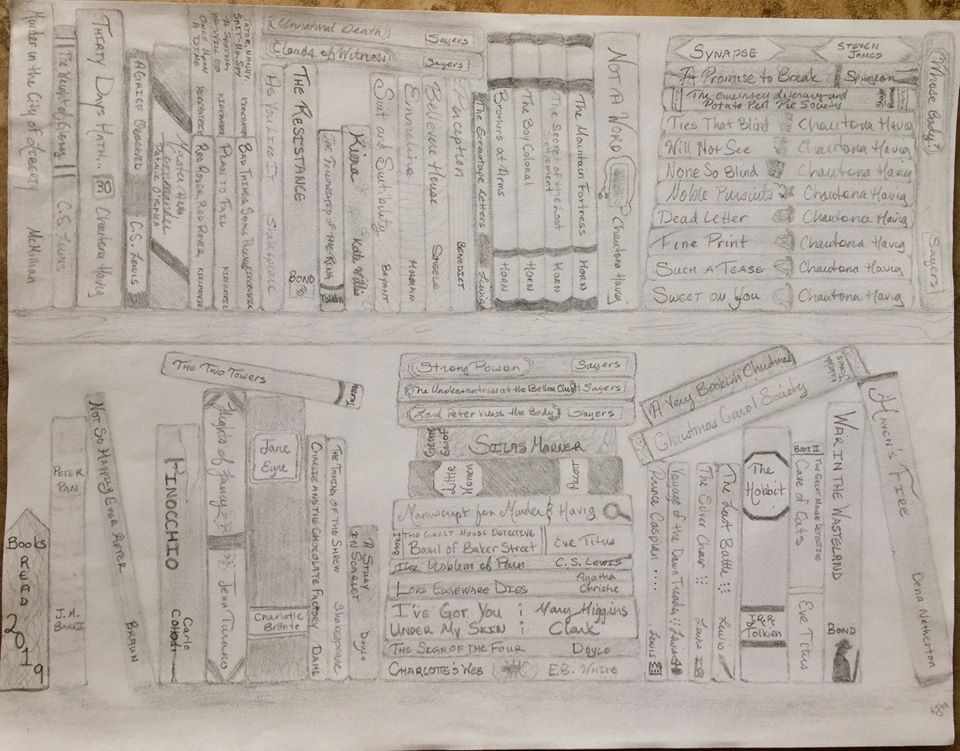 Murder in the City of Liberty McMillan
The Weight of Glory C.S. Lewis
Thirty Days Hath... Chautona Havig
A Grief Observed C.S. Lewis
Once Upon A Time
Red River, Red River
Plan to Fail
The Resistance Bond
As You Like It
Unnatural Death Sayers
Clouds of Witness Sayers
The Fellowship of the Ring
Kiera Kate Willis
Suit and Suitability Bryant
Emmeline
Bellevue House
Benedict
The Lewis
Brothers at Arms Horn
The Boy Colonel Horn
The Secret of the Lost Settlement Horn
The Mountain Fortress Horn
Not a Word Chautona Havig
Synapse Steven James
A Promise to Break Spurgeon
The Guernsey Literary and Potato Peel Pie Society
Ties That Blind Chautona Havig
Will Not See Chautona Havig
None So Blind Chautona Havig
Noble Pursuits Chautona Havig
Dead Letter Chautona Havig
Fine Print Chautona Havig
Such a Tease Chautona Havig
Sweet on You Chautona Havig
Whose Body? Sayers
Books Read 2019
Peter Pan J.M. Barrie
Not So Happily Ever After Braun
The Two Towers
Pinocchio Carlo Collodi
Flights of Fancy Jenn
Jane Eyre Charlotte Brönte
Charlie and the Chocolate Factory Dahl
The Taming of the Shrew Shakespeare
A Study in Scarlet Doyle
Strong Poison Sayers
The Unpleasantness at the Bellona Club Sayers
Lord Peter Views the Body Sayers
George Eliot Silas Marner
Little Women Alcott
Manuscript for Murder Havig
The Great Mouse Detective
Basil of Baker Street Eve Titus
The Problem of Pain C.S. Lewis
Lord Edgeware Dies Agatha Christie
I've Got You Under My Skin Mary Higgins Clark
The Sign of the Four Doyle
Charlotte's Web E.B. White
A Very Bookish Christmas
Christmas Carol Society
Prince Caspian .... Lewis
Voyage of the Dawn Treader Lewis
The Silver Chair Lewis
The Last Battle Lewis
The Hobbit J.R.R. Tolkien
Book II The Great Mouse Detective
Cave of Cats Eve Titus
War in the Wasteland Bond
Haven's Fire Dana